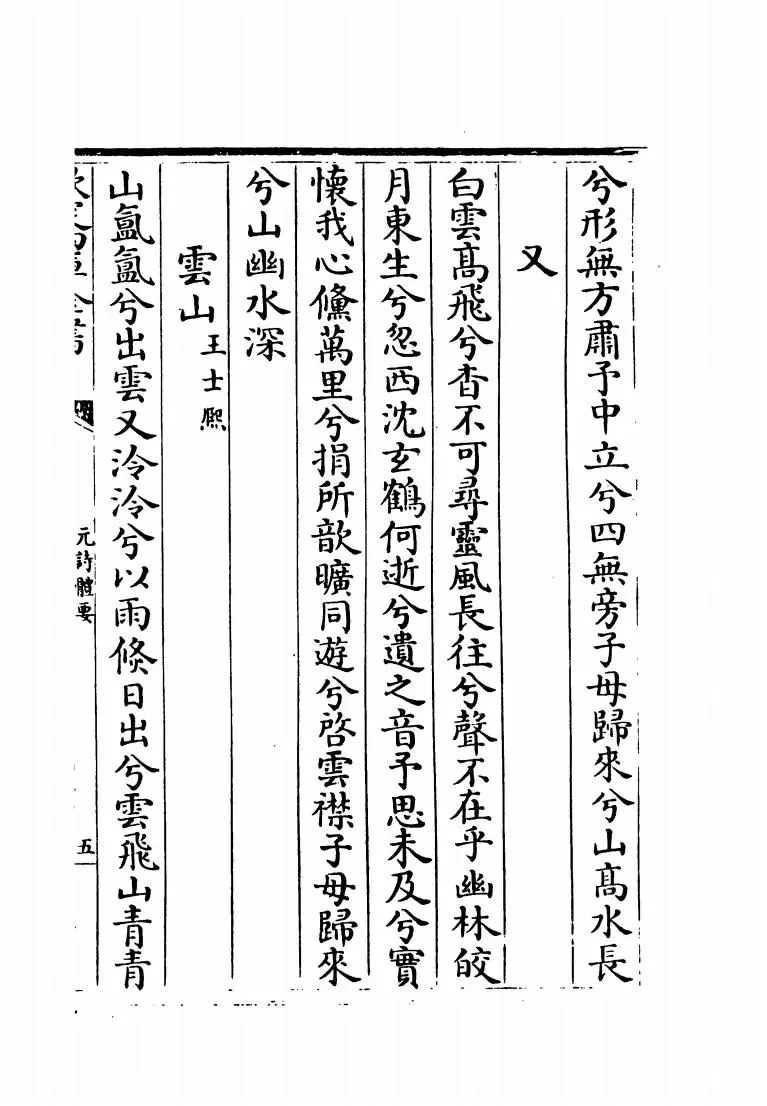 兮形無方肅予中立兮四無旁子毋歸來兮山髙水長
又
白雲髙飛兮杳不可尋靈風長往兮聲不在乎幽林皎
月東生兮忽西沈玄鶴何逝兮遺之音予思未及兮實
懷我心儵萬里兮捐所歆曠同遊兮啓雲襟子毋歸來
兮山幽水深
雲山 王士熈
山氳氳兮出雲又泠泠兮以雨倏日出兮雲飛山青青
元詩體要
五